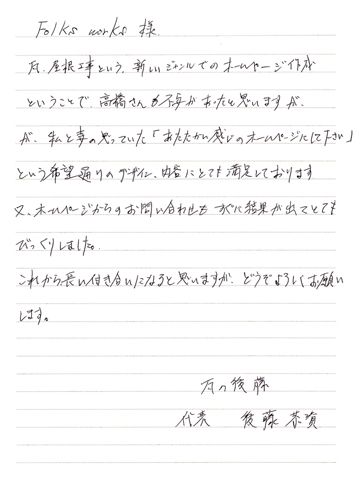 Folks works 様
瓦、屋根工事という、新しいジャンルでのホームページ作成
ということで、高橋さんも不安があったと思いますが
が、私と妻の思っていた「あたたかい感じのホームページにして下さい」
という希望通りのデザイン、内容にとても満足しております
又、ホームページからのお問い合わせも すぐに結果が出てとても
びっくりしました。
これから長い付き合いになると思いますが、どうぞよろしくお願い
します。
瓦の後藤
代表 後藤